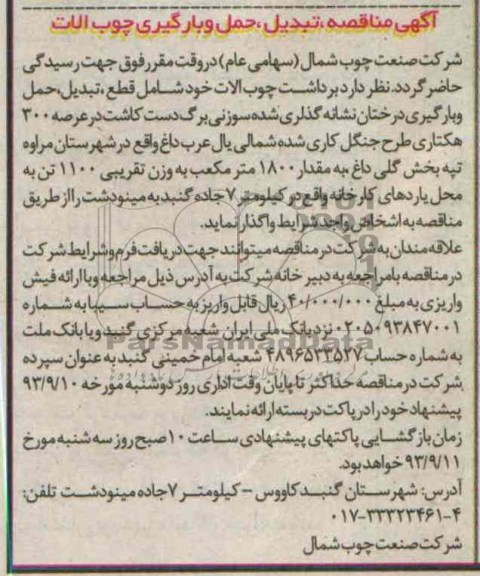 آگهی مناقصه ،تبدیل ،حمل وبارگیری چوب الات
شرکت صنعت چوب شمال (سهامی عام) دروقت مقررفوق جهت رسیدگی
حاضر گردد. نظر دارد برداشت چوب الات خود شامل قطع ،تبدیل،حمل
وبارگیری درختان نشانه گذاری شده سوزنی برگ دست کاشت در عرصه ۳۰۰
هکتاری طرح جنگل کاری شده شمالی یال عرب داغ واقع در شهرستان مراوه
تپه بخش گلی داغ ،به مقدار ۱۸۰۰ متر مکعب به وزن تقریبی ۱۱۰۰ تن به
محل یاردهای کارخانه واقع در کیلومتر ۷ جاده گنبد به مینودشت رااز طریق
مناقصه به اشخاص واجد شرایط واگذار نماید.
علاقه مندان به شرکت در مناقصه میتوانند جهت دریافت فرم و شرایط شرکت
در مناقصه بامراجعه به دبیر خانه شرکت به آدرس ذیل مراجعه وباارائه فیش
واریزی به مبلغ ۴۰/۰۰۰/۰۰۰ ریال قابل واریز به حساب سیبا به شماره
۰۲۰۵۰۹۳۸۴۷۰۰۱ نزد بانک ملی ایران شعبه مرکزی گنبد ویا بانک ملت
به شماره حساب ۴۸۹۶۵۳۳۵۲۷ شعبه امام خمینی گنبد به عنوان سپرده
شرکت در مناقصه حداکثر تا پایان وقت اداری روز دوشنبه مورخه ۹۳/۹/۱۰
پیشنهاد خود را در پاکت دربسته ارائه نمایند.
زمان بازگشایی پاکتهای پیشنهادی ساعت ۱۰ صبح روز سه شنبه مورخ
۹۳/۹/۱۱ خواهد بود.
آدرس: شهرستان گنبد کاووس – کیلومتر ۷ جاده مینودشت تلفن:
۰۱۷-۳۳۳۲۳۴۶۱-۴
شرکت صنعت چوب شمال
ParsNamadData